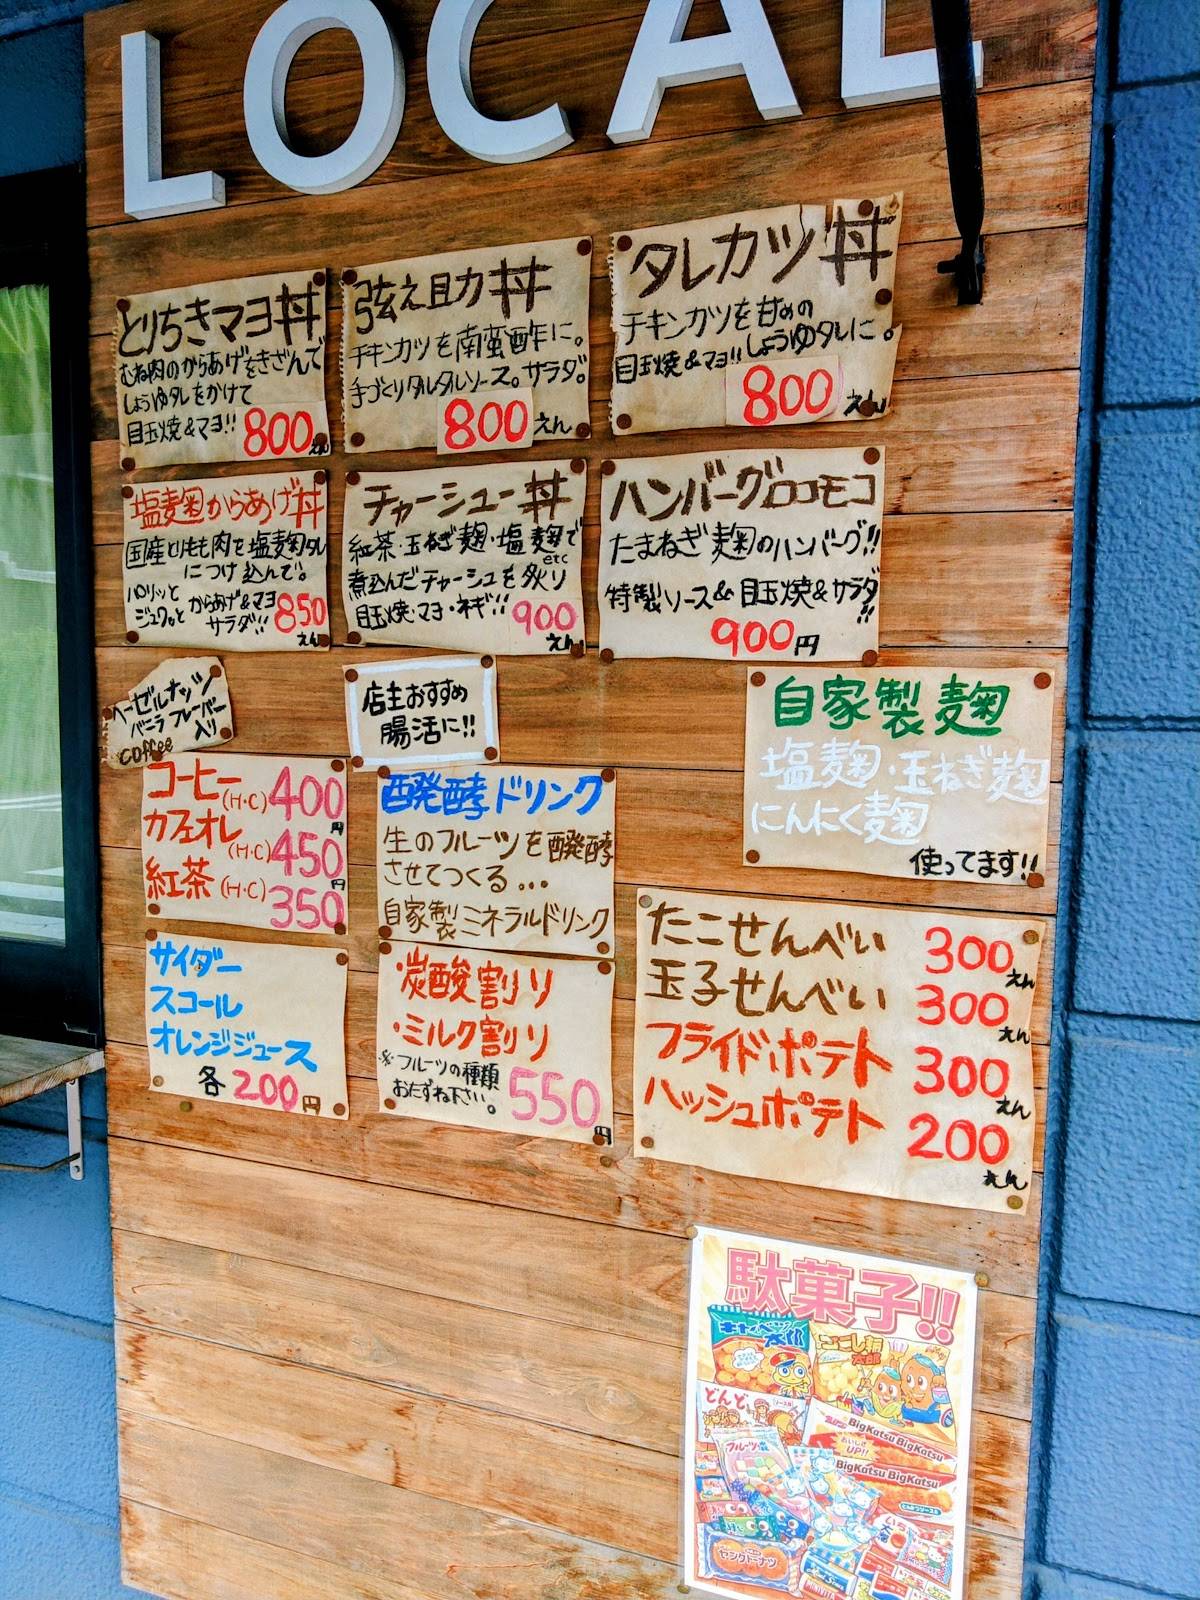 LOCAL
とりちきマヨ丼
むね肉のからあげをきざんで
しょうゆタレをかけて
目玉焼&マヨ!!
800えん
弦え助丼
チキンカツを南蛮酢に。
手づくりタルタルソース。サラダ。
800えん
タレカツ丼
チキンカツを甘めの
しょうゆタレに。
目玉焼&マヨ!!
800えん
塩麹からあげ丼
国産とりもも肉を塩麹タレ
につけ込んで。
パリッと
ジュワッと からあげ&マヨ
サラダ!!
850えん
チャーシュー丼
紅茶・玉ねぎ麹・塩麹etcで
煮込んだチャーシューを炙り
目玉焼・マヨ・ネギ!!
900えん
ハンバーグロコモコ
たまねぎ麹のハンバーグ!!
特製ソース&目玉焼&サラダ!!
900円
ヘーゼルナッツ
バニラフレーバー
入り
coffee
コーヒー(H・C)400円
カフェオレ(H・C)450円
紅茶(H・C)350
サイダー
スコール
オレンジジュース
各200円
店主おすすめ
腸活に!!
醗酵ドリンク
生のフルーツを醗酵
させてつくる...
自家製ミネラルドリンク
・炭酸割り
・ミルク割り
※フルーツの種類
おたずね下さい。
550円
自家製麹
塩麹・玉ねぎ麹
にんにく麹
使ってます!!
たこせんべい 300えん
玉子せんべい 300えん
フライドポテト 300えん
ハッシュポテト 200えん
駄菓子!!
キャベツ太郎
もろこし輪太郎
どんどん
BigKatsu BigKatsu
おいしさUP!!
BigKatsu BigKatsu
フルーツの森
ヤングドーナツ
MINIVITA